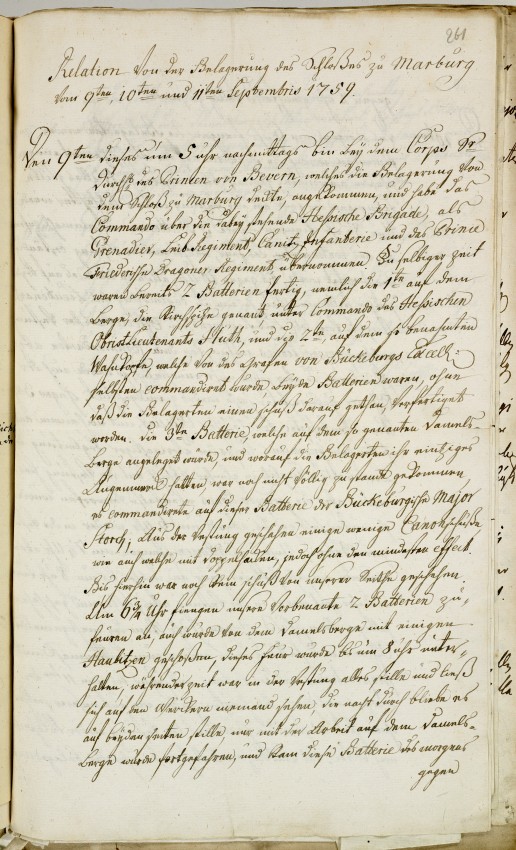 261
Relation von der Belagerung des Schloßes zu Marburg
vom 9ten, 10ten und 11ten Septembris 1759.
Den 9ten dieses um 5 uhr nachmittags bin bey dem Corps Sr
Durchlt des Printzen von Bevern, welches die Belagerung von
dem Schloß zu Marburg deckte, angekommen, und habe das
Commando über die dabey stehende Hessische Brigade, als
Grenadier, Leib Regiment, Canitz Infanterie und des Printz
Friederichs Dragoner Regiment übernommen. Zu selbiger zeit
waren bereits 2 Batterien fertig, nemlich die 1te auf dem
Berge, die Kirchspitze genant unter Commando des Hessischen
Obristlieutenants Huth, und die 2te auf dem so benannten
welche von des Grafen von Bückeburgs Excell:
selbsten commandiret wurde beyde Batterien waren, ohne
daß die Belagerten einen schuß darauf gethan, verfertiget
worden. die 3te Batterie, welche auf dem so genanten Damels-
Berge angeleget wurde und worauf die Belagerten ihr einziges
Augenmerck hatten, war noch nicht völlig zu stande gekommen,
es commandirete auf dieser Batterie der Bückeburgische Major
Storch; Aus der Vestung geschahen einige wenige Canonschüße
wie auch welche mit Doppelhacken, jedoch ohne den mindesten effect.
Bis hierhin war noch kein schuß von unserer Seithe geschehen.
Um 6 3/4 Uhr fiengen unsere vorbenante 2 Batterien zu
feuren an, auch wurde von dem Damelsberge mit einigen
Haubitzen geschoßen, dieses feur wurde bis um 8 uhr unter-
halten, währender zeit war in der Vestung alles stille und ließ
sich auf den Wercken niemand sehen, die nacht durch bliebe es
auf beyden seiten stille nur mit der Arbeit auf dem Damels-
Berge wurde fortgefahren, und kam diese Batterie des morgens
gegen